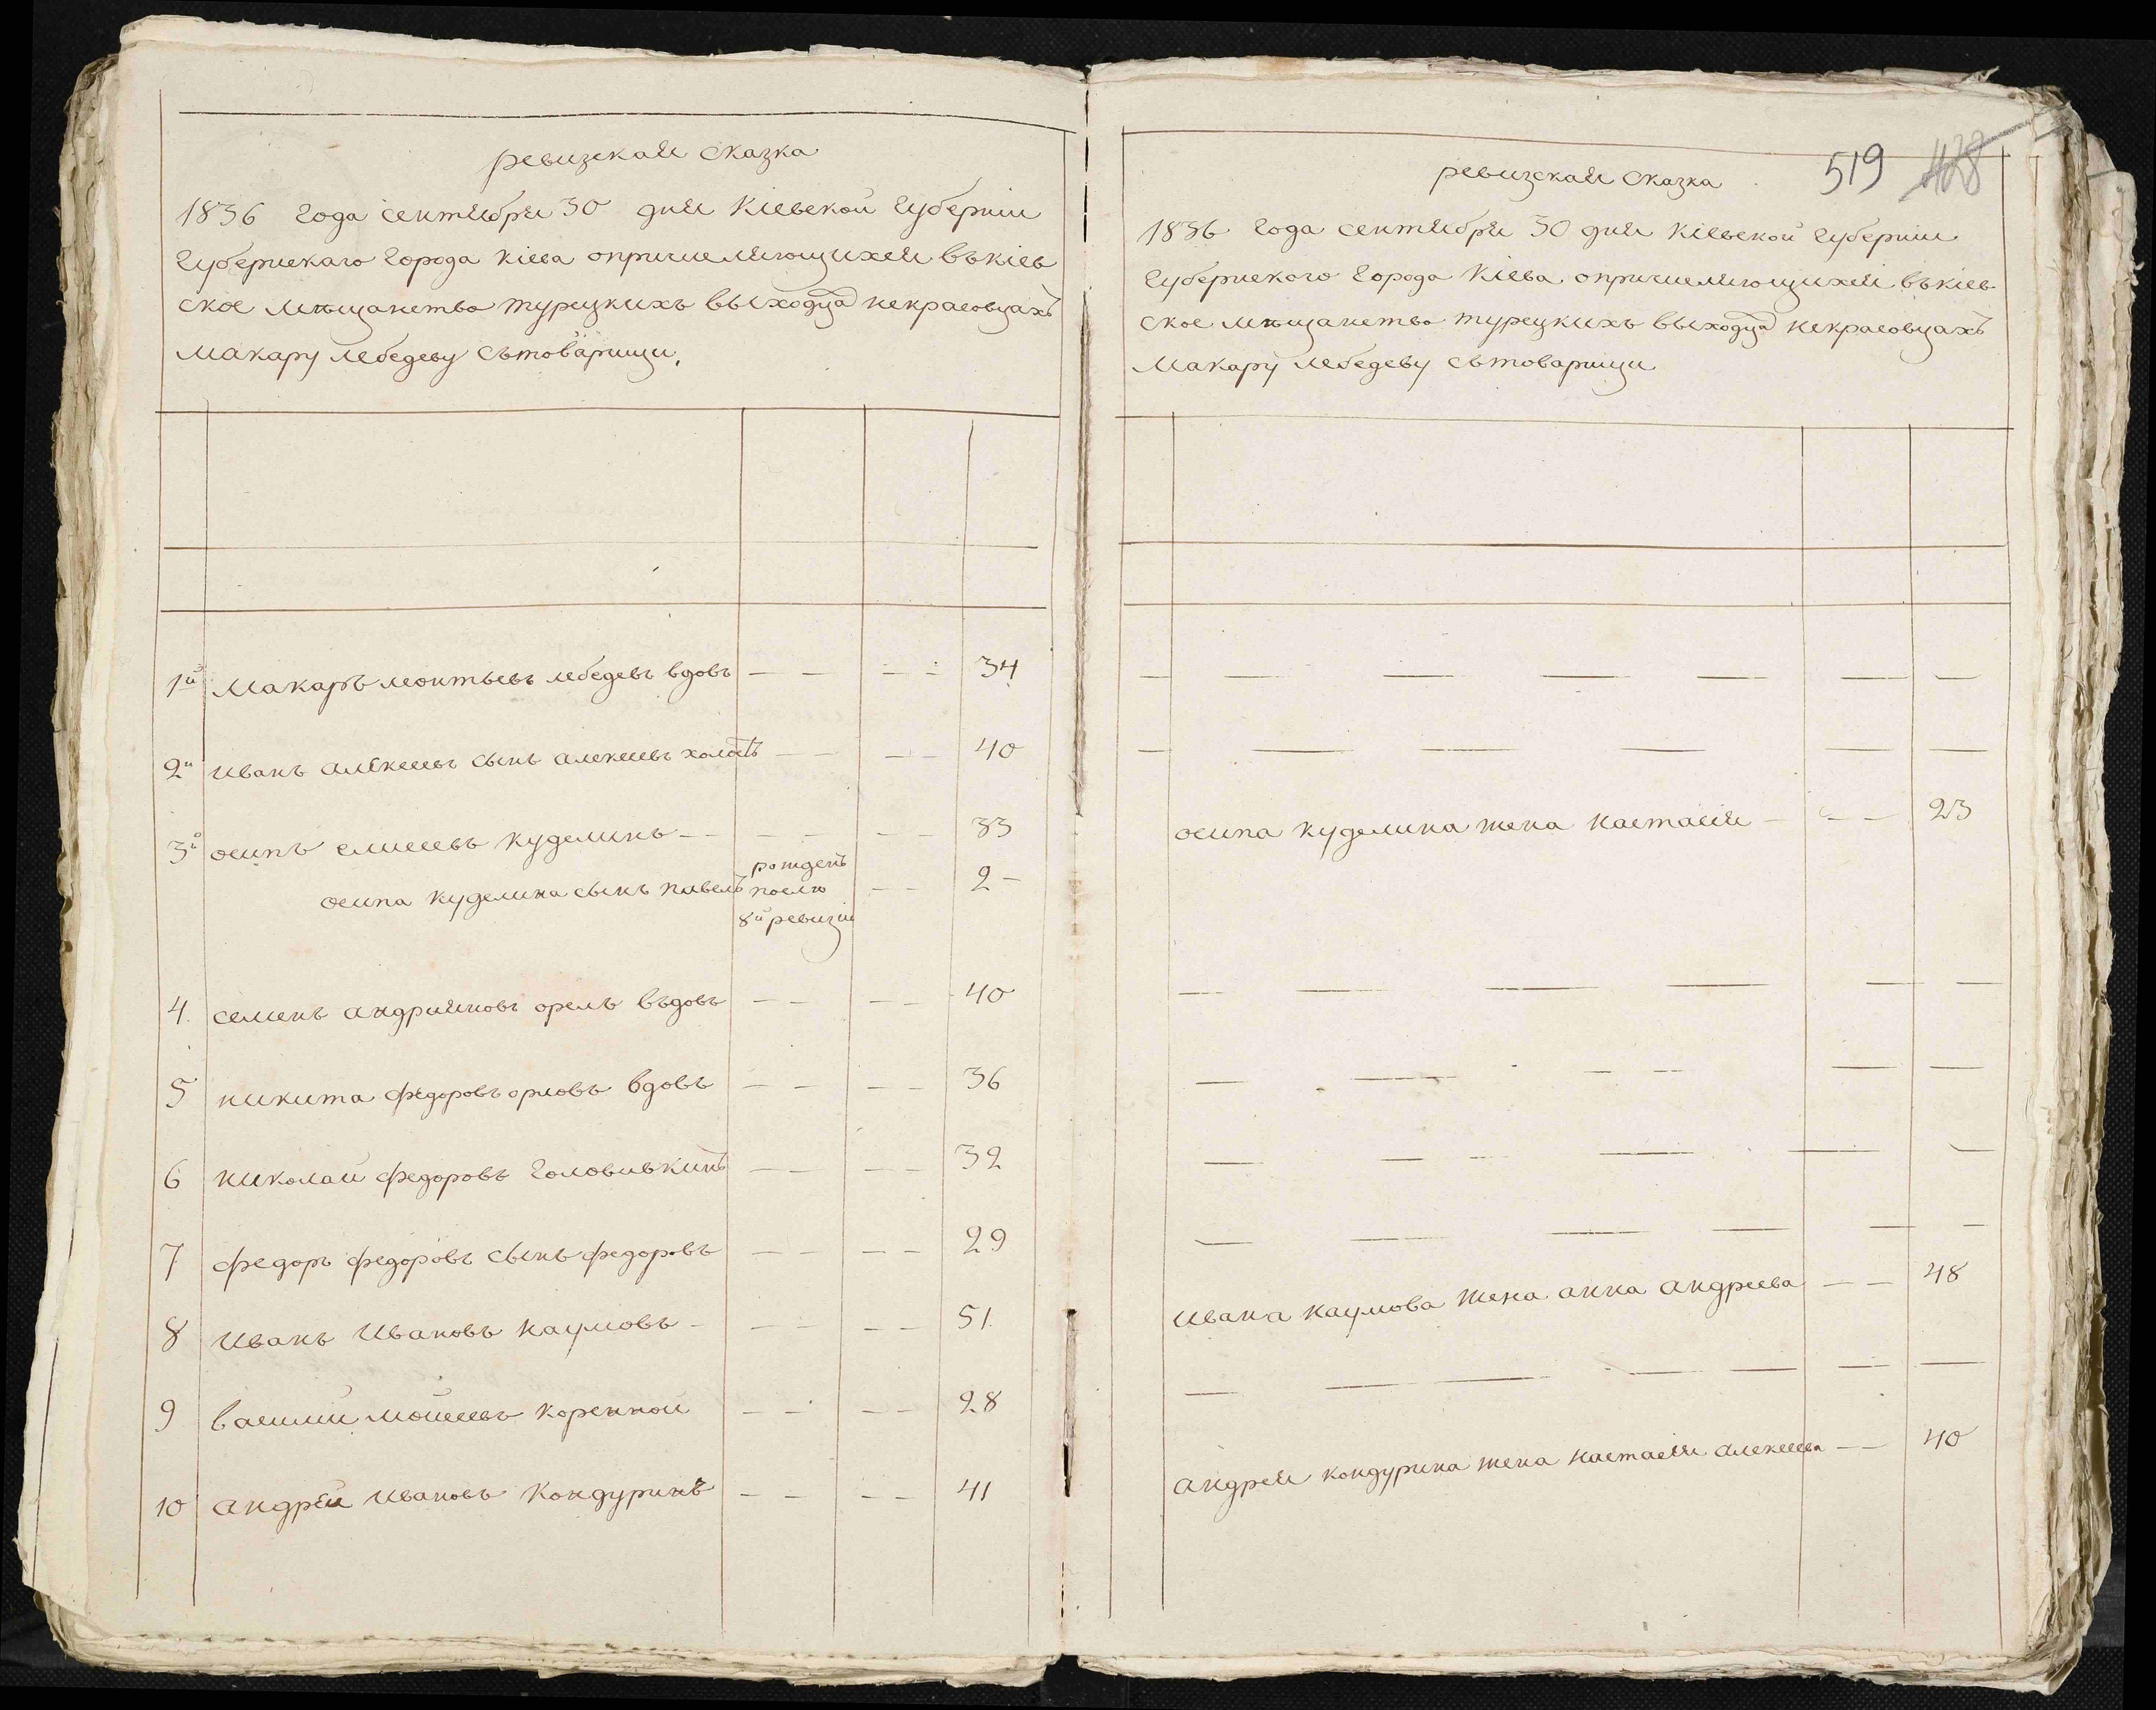 ревизская сказка
1836 года сентября 30 дня Кіевской губерніи
губернскаго города Кіева опричисляющихся въкіев
ское мѣщанство турецкихъ выходца некрасовцахъ
макару лебедеву сътоварищи.
1й макаръ леонтьевъ лебедевъ вдовъ — — — — 34
2й иванъ алексеевъ сынъ алексеевъ холостъ — — — — 40
3й осипъ елисеевъ куделинъ — — — — — — 33
осипа куделина сынъ павелъ рожденъ после 8й ревизіи — — 2 —
4. семенъ андрияновъ орелъ въдовъ — — — — 40
5 никита федоровъ орловъ вдовъ — — — — 36
6 николай федоровъ головивкинъ — — — — 32
7 федоръ федоровъ сынъ федоровъ — — — — 29
8 иванъ ивановъ наумовъ — — — — — 51.
9 василии моисеевъ коренной — — — — 28
10 андрей ивановъ кондуринъ — — — — 41
519 428
ревизская сказка
1836 года сентября 30 дня Кіевской губерніи
губернского города Кіева опричисляющихся въкіев
ское мѣщанство турецкихъ выходца некрасовцахъ
макару лебедеву сътоварищи
осипа куделина жена настасія — — — 23
ивана наумова жена анна андреева — — 48
андрея кондурина жена настасія алексеева — — 40